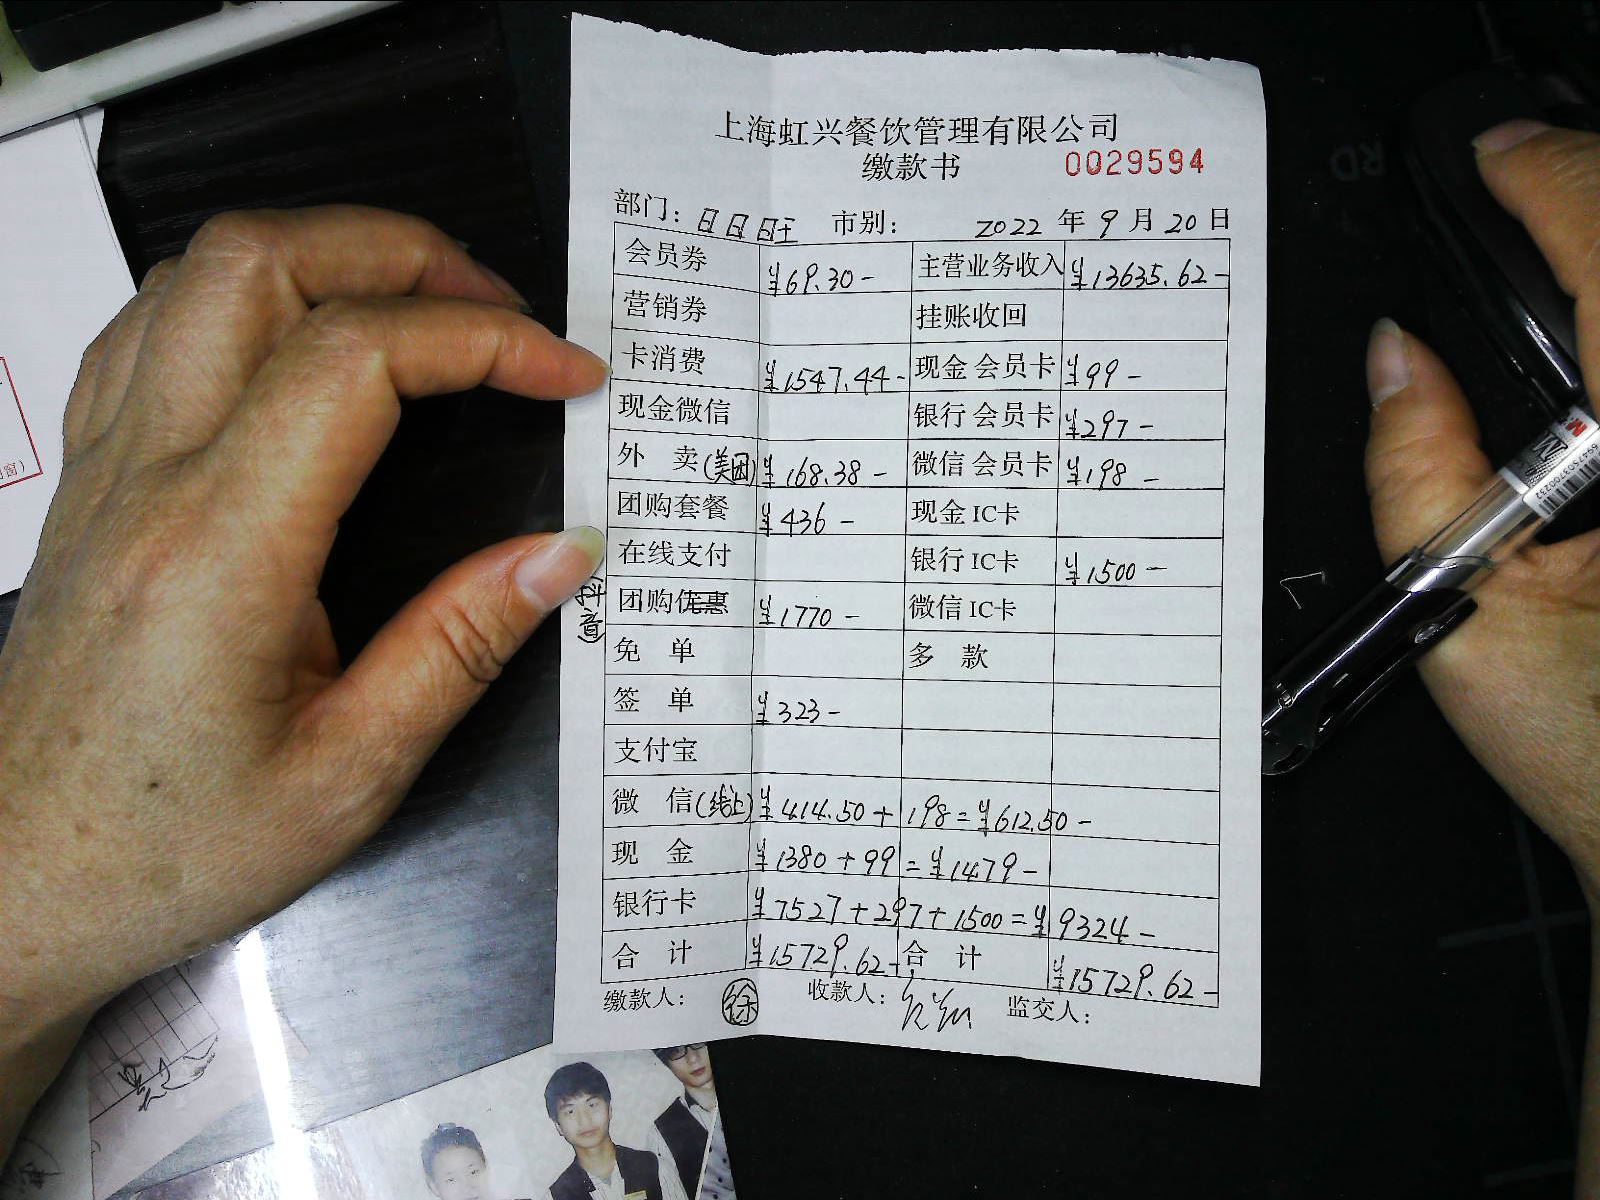 上海虹兴餐饮管理有限公司
缴款书 0029594
部门: 日日旺 市别: 2022 年 9 月 20 日
会员券 ¥69.30- 主营业务收入 ¥13635.62-
营销券 挂账收回
卡消费 ¥1547.44- 现金会员卡 ¥99-
现金微信 银行会员卡 ¥297-
外 卖(美团) ¥168.38- 微信会员卡 ¥198-
团购套餐 ¥436- 现金IC卡
在线支付 银行IC卡 ¥1500-
(抖音) 团购优惠 ¥1770- 微信IC卡
免 单 多 款
签 单 ¥323-
支付宝
微 信(线上) ¥414.50+198=¥612.50-
现 金 ¥1380+99=¥1479-
银行卡 ¥7527+297+1500=¥9324-
合 计 ¥15729.62- 合 计 ¥15729.62-
缴款人: 徐 收款人: 监交人: